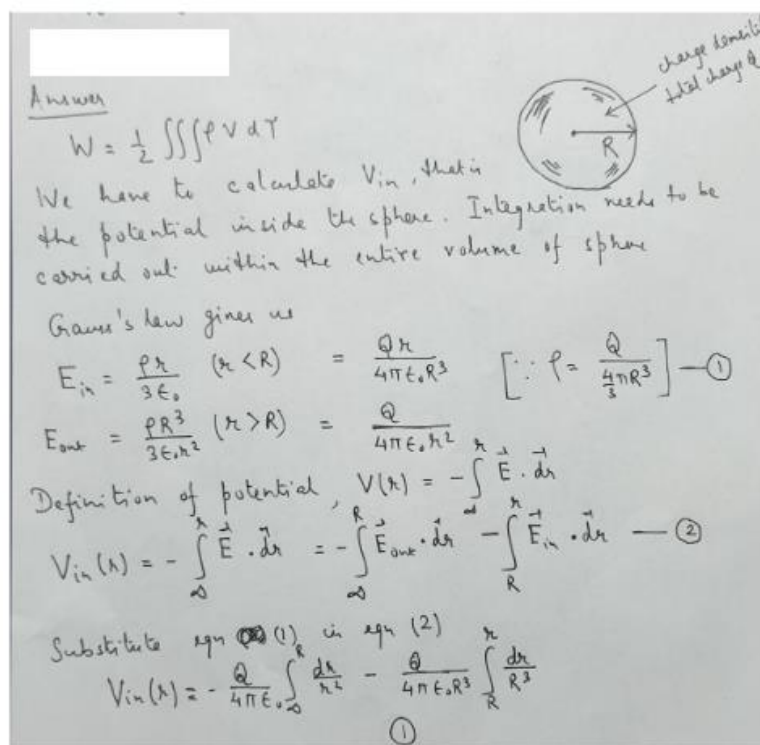 charge densit
total charge Q
Answer
W = 1/2 ∭ ρ V dτ
R
We have to calculate Vin, that is
the potential inside the sphere. Integration needs to be
carried out within the entire volume of sphere
Gauss's law gives us
E_in = ρr/3ε₀ (r < R) = Qr/4πε₀R³ [∵ ρ = Q/(4/3 πR³)] — ①
E_out = ρR³/3ε₀r² (r > R) = Q/4πε₀r²
Definition of potential, V(r) = -∫_∞^r E⃗ · dr⃗
V_in(r) = -∫_∞^r E⃗ · dr⃗ = -∫_∞^R E⃗_out · dr⃗ - ∫_R^r E⃗_in · dr⃗ — ②
Substitute eqn (1) in eqn (2)
V_in(r) = -Q/4πε₀ ∫_∞^R dr/r² - Q/4πε₀R³ ∫_R^r dr/R³
①